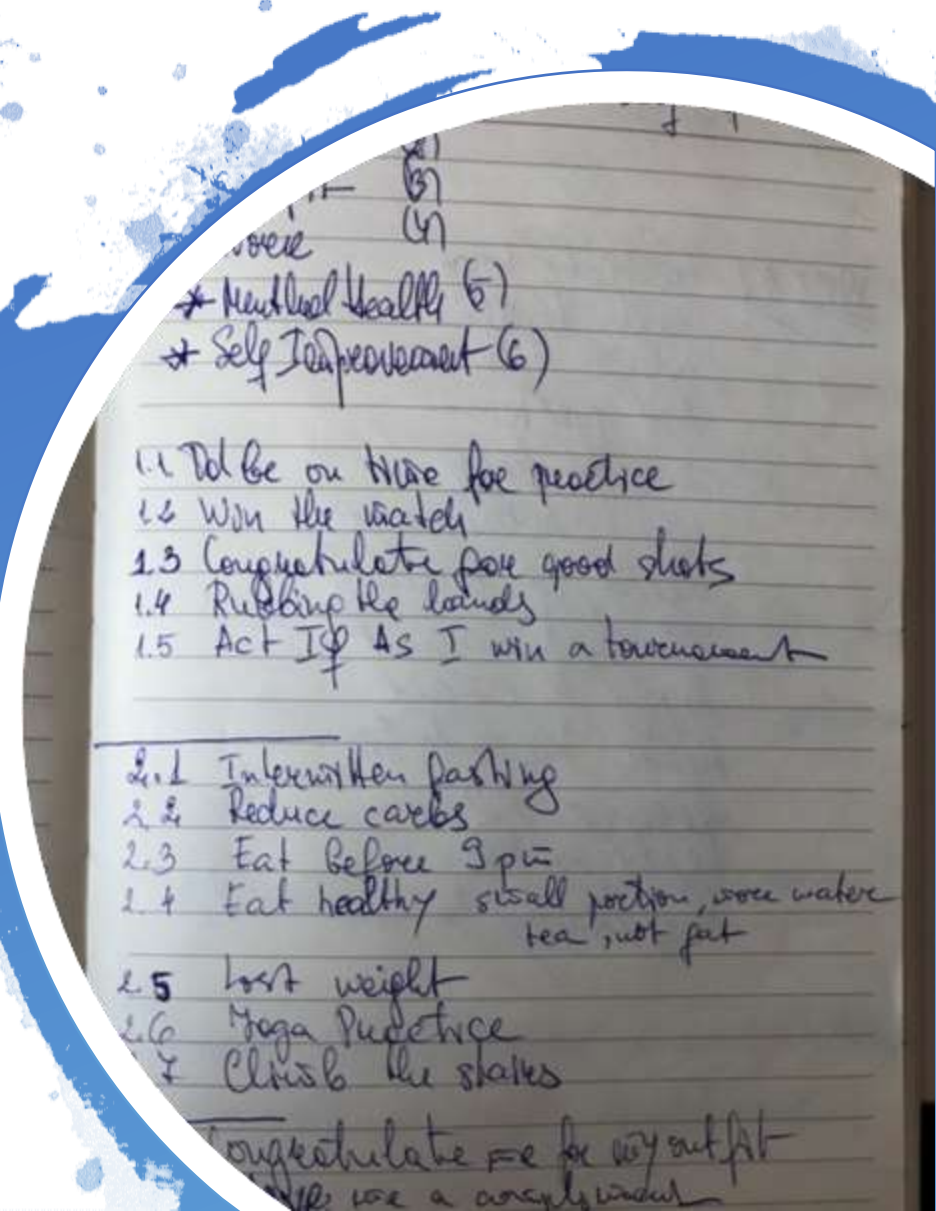 (3)
(4)
* Menthal Health (5)
* Self Improvement (6)
1.1 To be on time for practice
1.2 Win the match
1.3 Congratulate for good shots
1.4 Rubbing the hands
1.5 Act If As I win a tournament
2.1 Intermitten fasting
2.2 Reduce carbs
2.3 Eat before 9 pm
2.4 Eat healthy small portion, more water
tea, not fat
2.5 Lost weight
2.6 Yoga Practice
7 Climb the stairs
Congratulate me for my outfit
me a